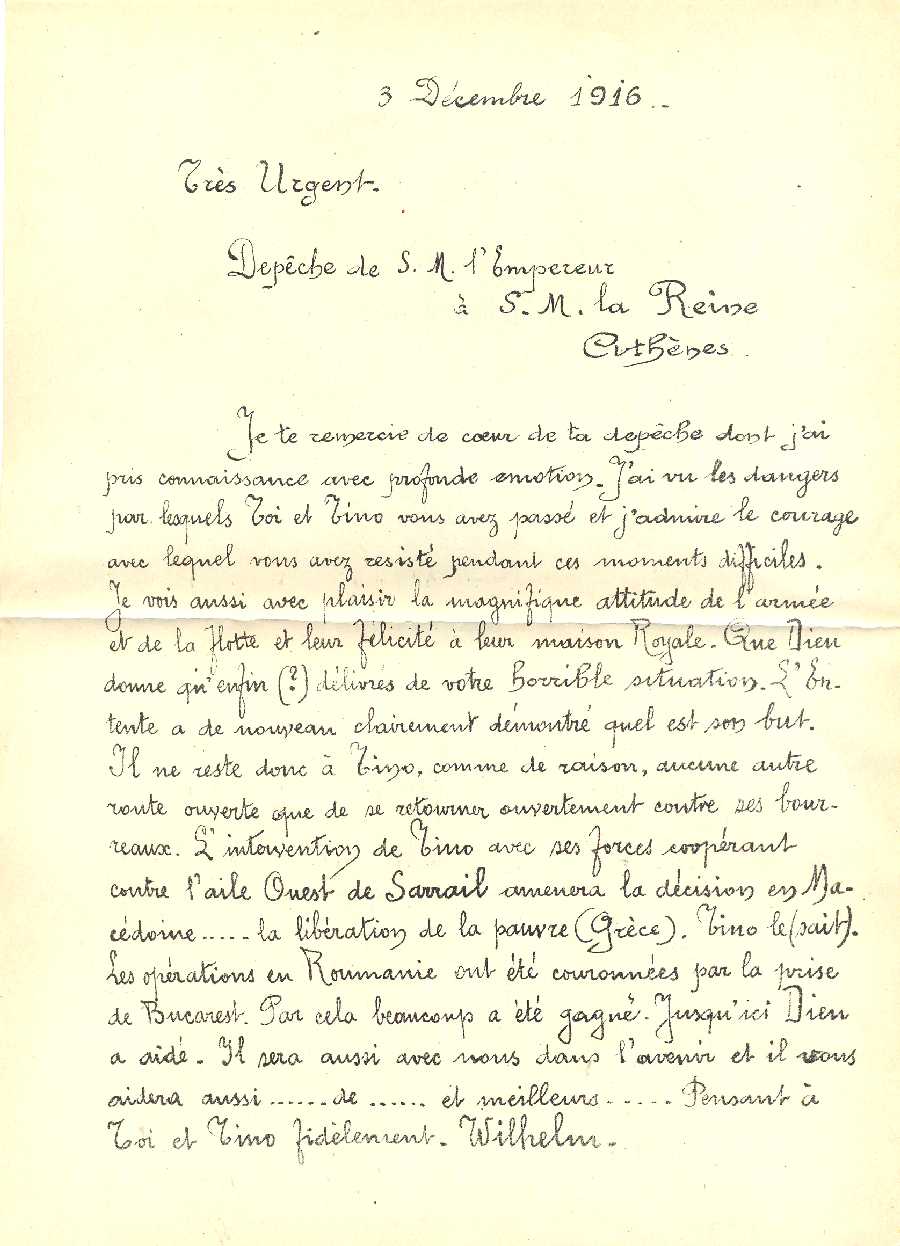 3 Décembre 1916..
Très Urgent.
Depêche de S. M. l'Empereur
à S. M. la Reine
Athènes.
Je te remercie de cœur de ta depêche dont j'ai
pris connaissance avec profonde emotion. J'ai vu les dangers
par lesquels Toi et Tino vous avez passé et j'admire le courage
avec lequel vous avez resisté pendant ces moments difficiles.
Je vois aussi avec plaisir la magnifique attitude de l'armée
et de la flotte et leur félicité à leur maison Royale. Que Dieu
donne qu'enfin (?) délivrés de votre horrible situation. L'En-
tente a de nouveau clairement démontré quel est son but.
Il ne reste donc à Tino, comme de raison, aucune autre
route ouverte que de se retourner ouvertement contre ses bour-
reaux. L'intervention de Tino avec ses forces coopérant
contre l'aile Ouest de Sarrail amenera la décision en Ma-
cédoine ..... la libération de la pauvre (Grèce). Tino le (sait).
Les opérations en Roumanie ont été couronnées par la prise
de Bucarest. Par cela beaucoup a été gagné. Jusqu'ici Dieu
a aidé. Il sera aussi avec nous dans l'avenir et il vous
aidera aussi ...... de ...... et meilleurs ..... Pensant à
Toi et Tino fidèlement. Wilhelm.